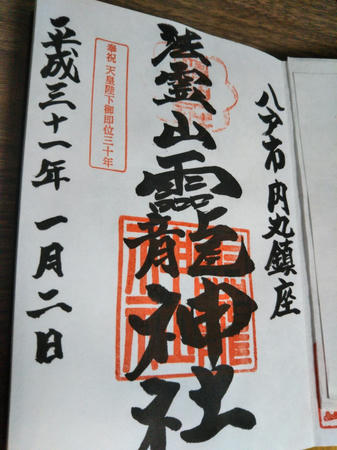 八戸市内丸鎮座
法霊山龗神社
奉祝 天皇陛下御即位三十年
平成三十一年 一月二日